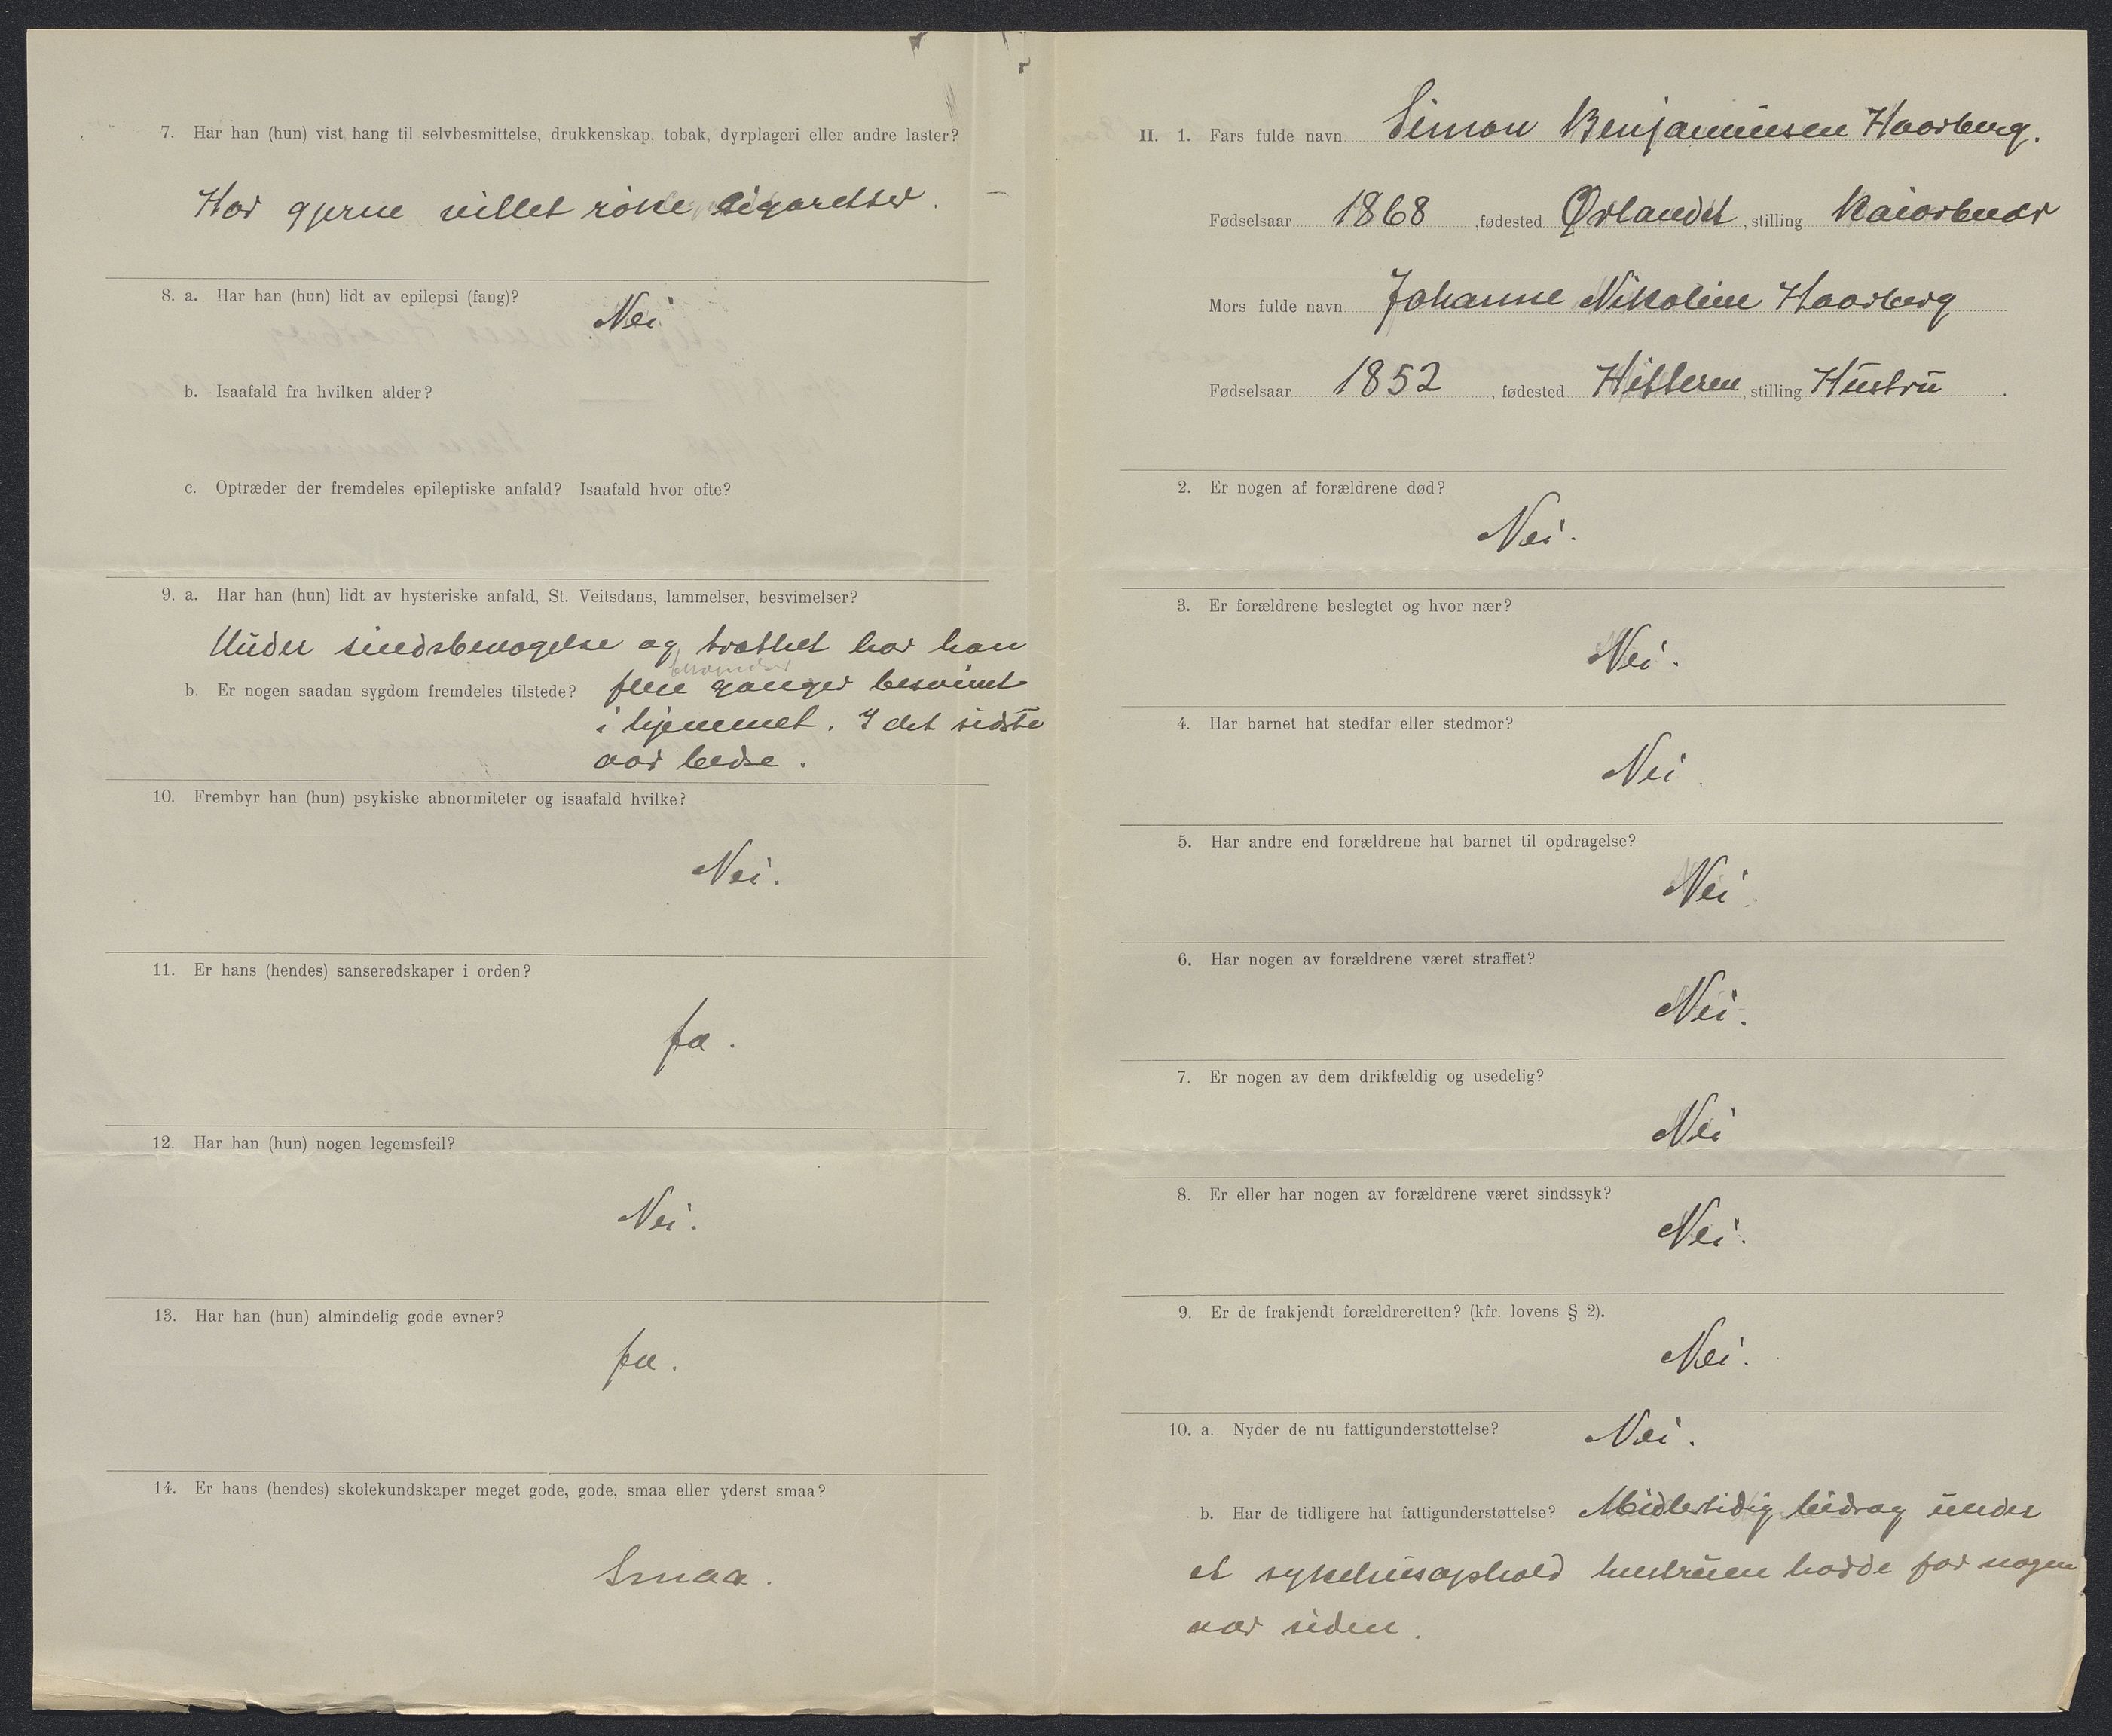 7. Har han (hun) vist hang til selvbesmittelse, drukkenskap, tobak, dyrplageri eller andre laster?
Har gjerne villet röke sigaretter.
8. a. Har han (hun) lidt av epilepsi (fang)?
Nei
b. Isaafald fra hvilken alder?
c. Optræder der fremdeles epileptiske anfald? Isaafald hvor ofte?
9. a. Har han (hun) lidt av hysteriske anfald, St. Veitsdans, lammelser, besvimelser?
Under sindsbevægelse og træthet har han
b. Er nogen saadan sygdom fremdeles tilstede? flere ganger besvimt
i hjemmet. I det sidste
aar bedre.
10. Frembyr han (hun) psykiske abnormiteter og isaafald hvilke?
Nei.
11. Er hans (hendes) sanseredskaper i orden?
Ja.
12. Har han (hun) nogen legemsfeil?
Nei.
13. Har han (hun) almindelig gode evner?
Ja.
14. Er hans (hendes) skolekundskaper meget gode, gode, smaa eller yderst smaa?
Smaa.
II. 1. Fars fulde navn Simon Benjaminsen Haarberg.
Fødselsaar 1868, fødested Ørlandet, stilling
Mors fulde navn Johanne Nikoline Haarberg
Fødselsaar 1852, fødested Hitteren, stilling Hustru.
2. Er nogen af forældrene død?
Nei.
3. Er forældrene beslegtet og hvor nær?
Nei.
4. Har barnet hat stedfar eller stedmor?
Nei.
5. Har andre end forældrene hat barnet til opdragelse?
Nei.
6. Har nogen av forældrene været straffet?
Nei.
7. Er nogen av dem drikfældig og usedelig?
Nei
8. Er eller har nogen av forældrene været sindssyk?
Nei.
9. Er de frakjendt forældreretten? (kfr. lovens § 2).
Nei.
10. a. Nyder de nu fattigunderstøttelse? Nei.
b. Har de tidligere hat fattigunderstøttelse? Midlertidig bidrag under
et sykehusophold hustruen hadde for nogen
aar siden.